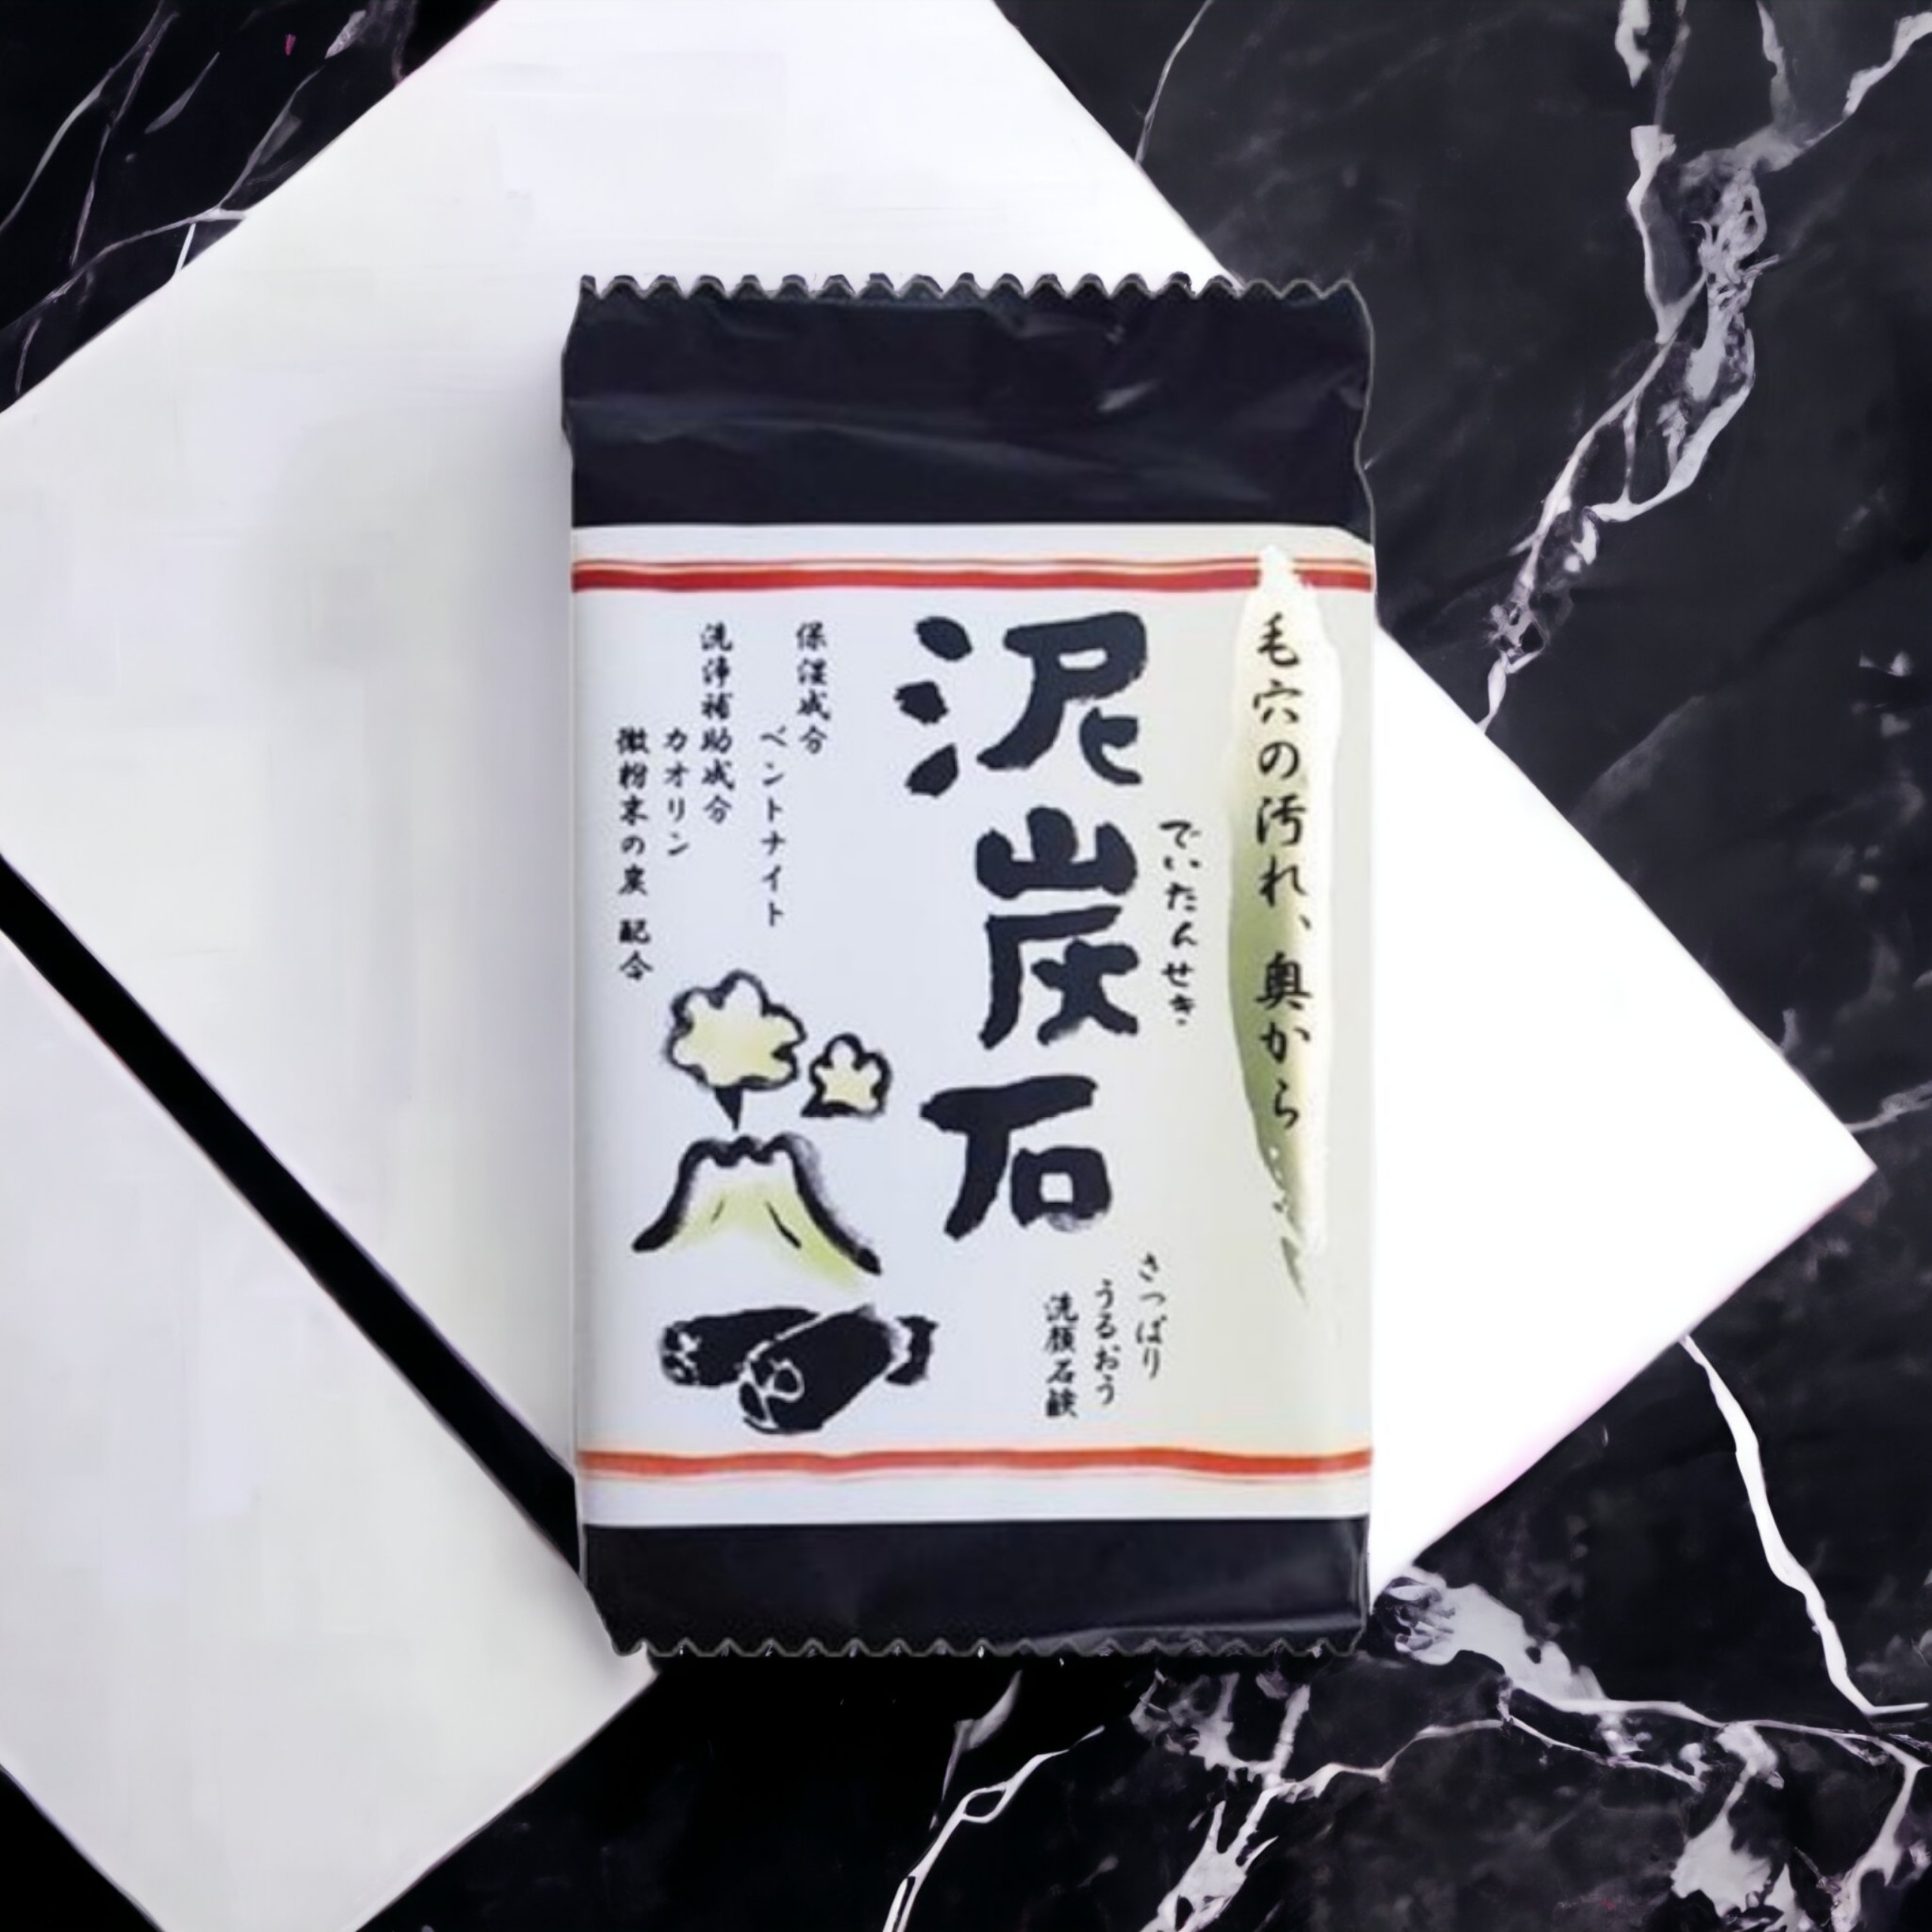 毛穴の汚れ、奥から……
でいたんせき
泥炭石
さっぱり
うるおう
洗顔石鹸
保湿成分
ベントナイト
洗浄補助成分
カオリン
微粉末の炭 配合